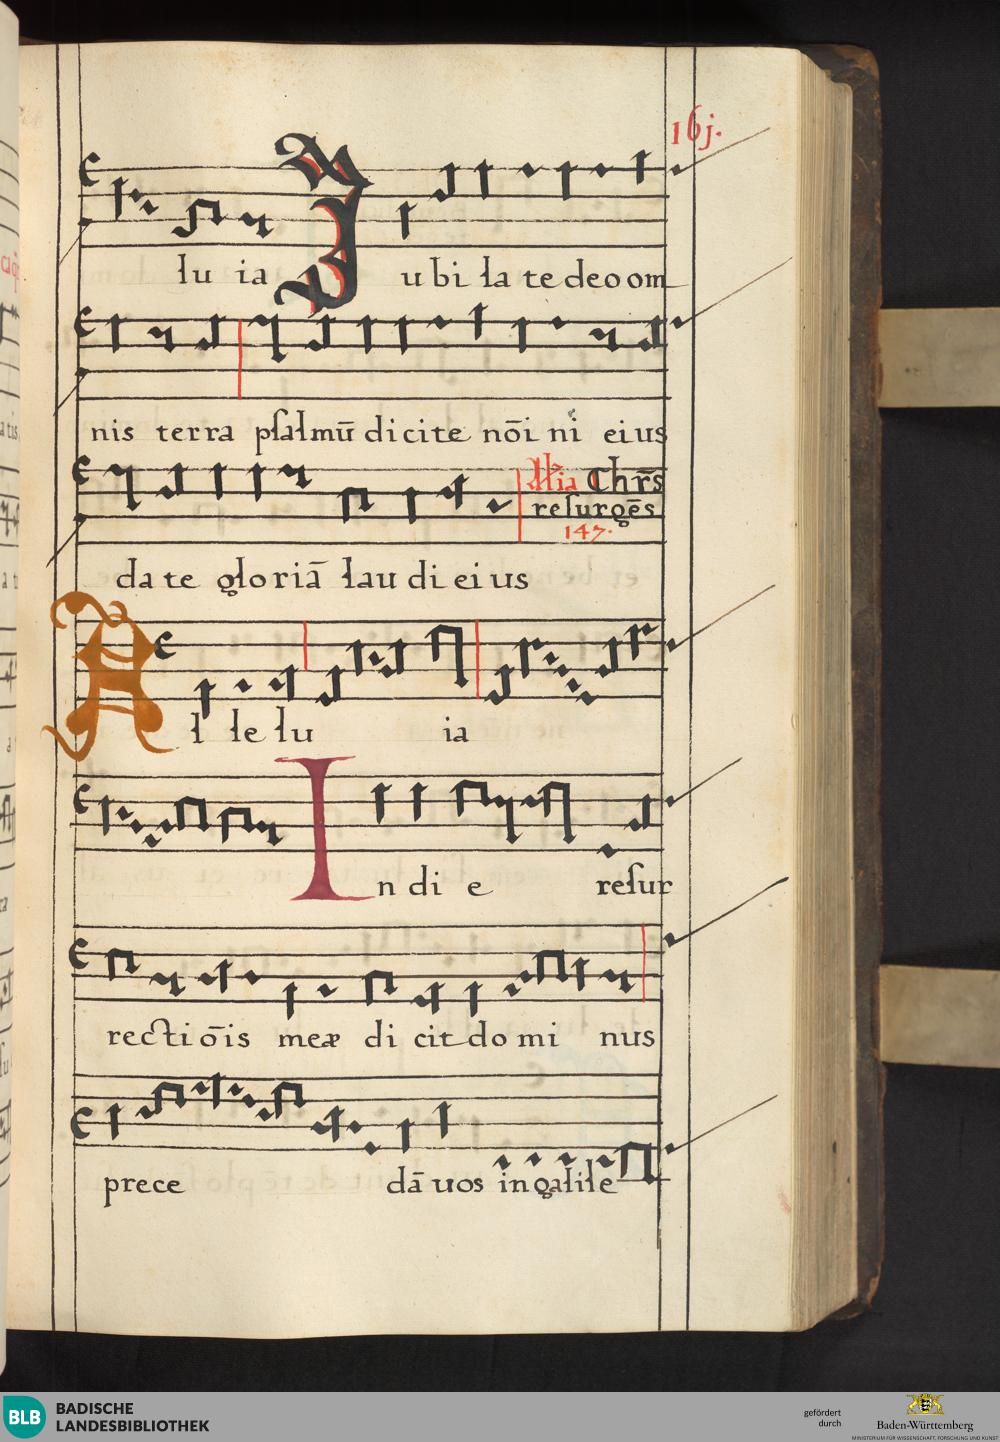 16j.
lu ia Iu bi la te deo om
nis terra psalmū dicite nōi ni eius
Allia Chrs
resurgēs
147.
da te gloriā lau di ei us
Al le lu ia
In di e resur
rectiōis meæ di cit do mi nus
prece dā uos in galile
BLB BADISCHE
LANDESBIBLIOTHEK
gefördert
durch
Baden-Württemberg
MINISTERIUM FÜR WISSENSCHAFT, FORSCHUNG UND KUNST